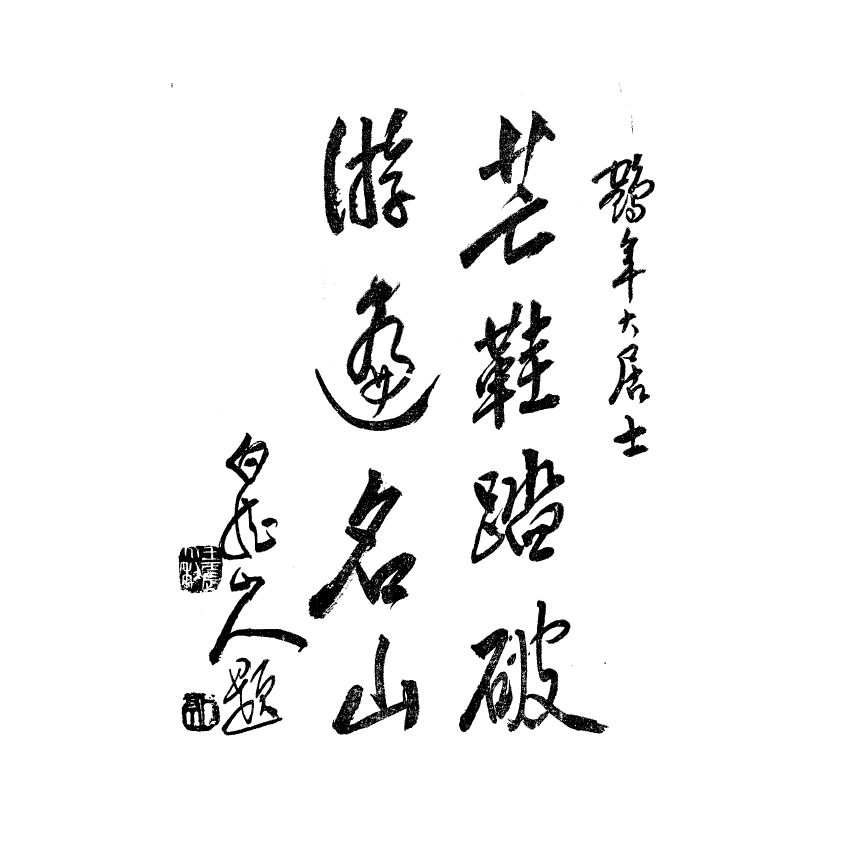 鶴年大居士
芒鞋踏破
游遍名山
白龍山人題